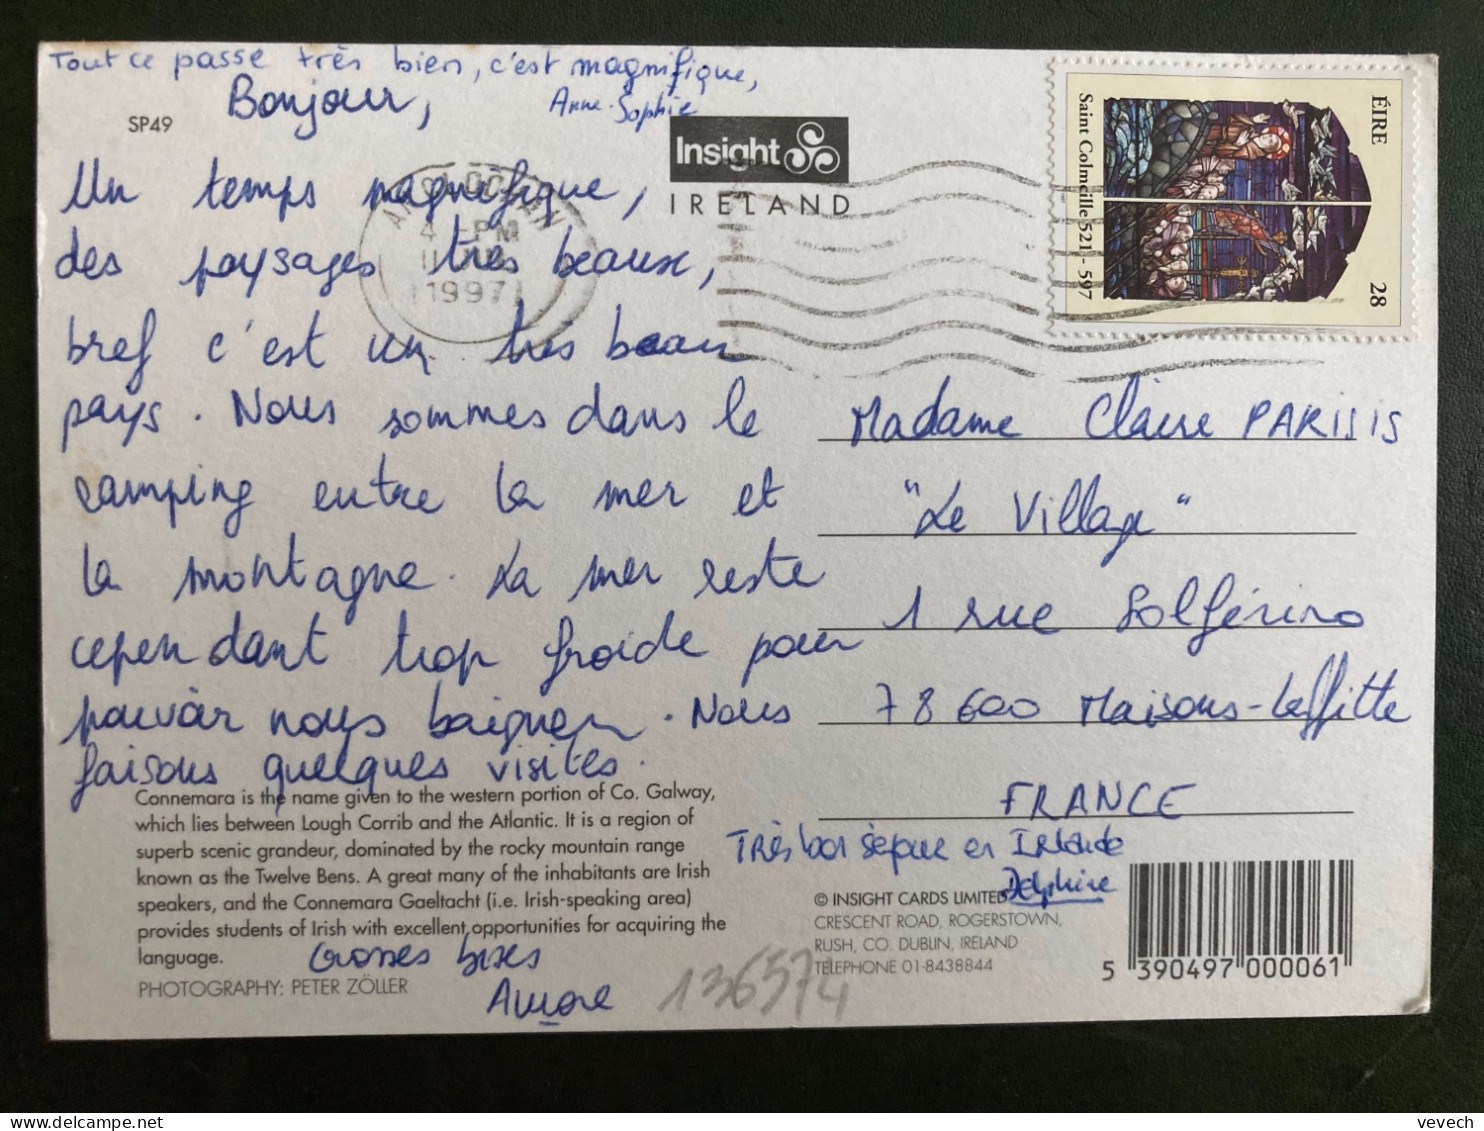 Tout ce passe très bien, c'est magnifique,
Anne-Sophie
Bonjour,
SP49
Insight
IRELAND
Un temps magnifique,
des paysages très beaux,
bref c'est un très beau
pays. Nous sommes dans le
camping entre la mer et
la montagne. La mer reste
cependant trop froide pour
pouvoir nous baigner. Nous
faisons quelques visites.
Connemara is the name given to the western portion of Co. Galway,
which lies between Lough Corrib and the Atlantic. It is a region of
superb scenic grandeur, dominated by the rocky mountain range
known as the Twelve Bens. A great many of the inhabitants are Irish
speakers, and the Connemara Gaeltacht (i.e. Irish-speaking area)
provides students of Irish with excellent opportunities for acquiring the
language.
Grosses bises
Aurore
PHOTOGRAPHY: PETER ZÖLLER
136574
4 PM
1997
ÉIRE
28
Saint Colmcille 521 - 597
Madame Claire PARISIS
"Le Village"
1 rue Solférino
78600 Maisons-Laffitte
FRANCE
Très bon séjour en Irlande
Delphine
© INSIGHT CARDS LIMITED
CRESCENT ROAD, ROGERSTOWN,
RUSH, CO. DUBLIN, IRELAND
TELEPHONE 01-8438844
5 390497 000061
vevech